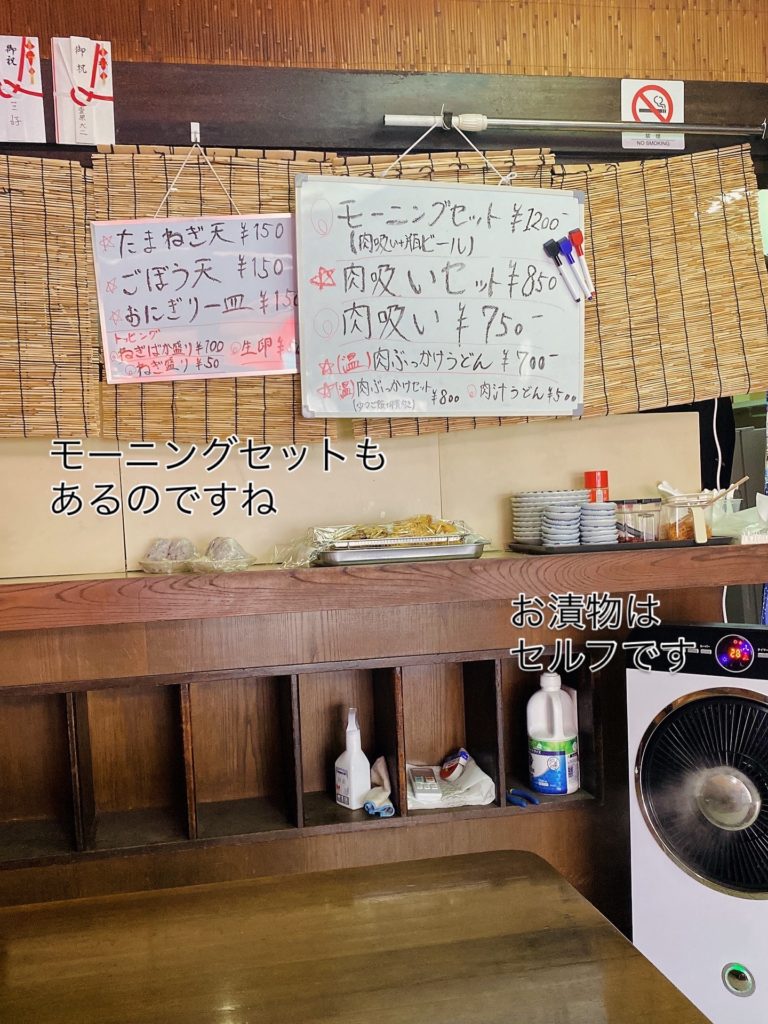 御祝
三好
御祝
NO SMOKING
たまねぎ天 ¥150
ごぼう天 ¥150
おにぎり一皿 ¥150
トッピング
ねぎばか盛り ¥100
ねぎ盛り ¥50
生卵 ¥
モーニングセット ¥1200-
(肉吸い+瓶ビール)
肉吸いセット ¥850
肉吸い ¥750-
(温)肉ぶっかけうどん ¥700-
(温)肉ぶっかけセット ¥800
肉汁うどん ¥500
モーニングセットも
あるのですね
お漬物は
セルフです
28